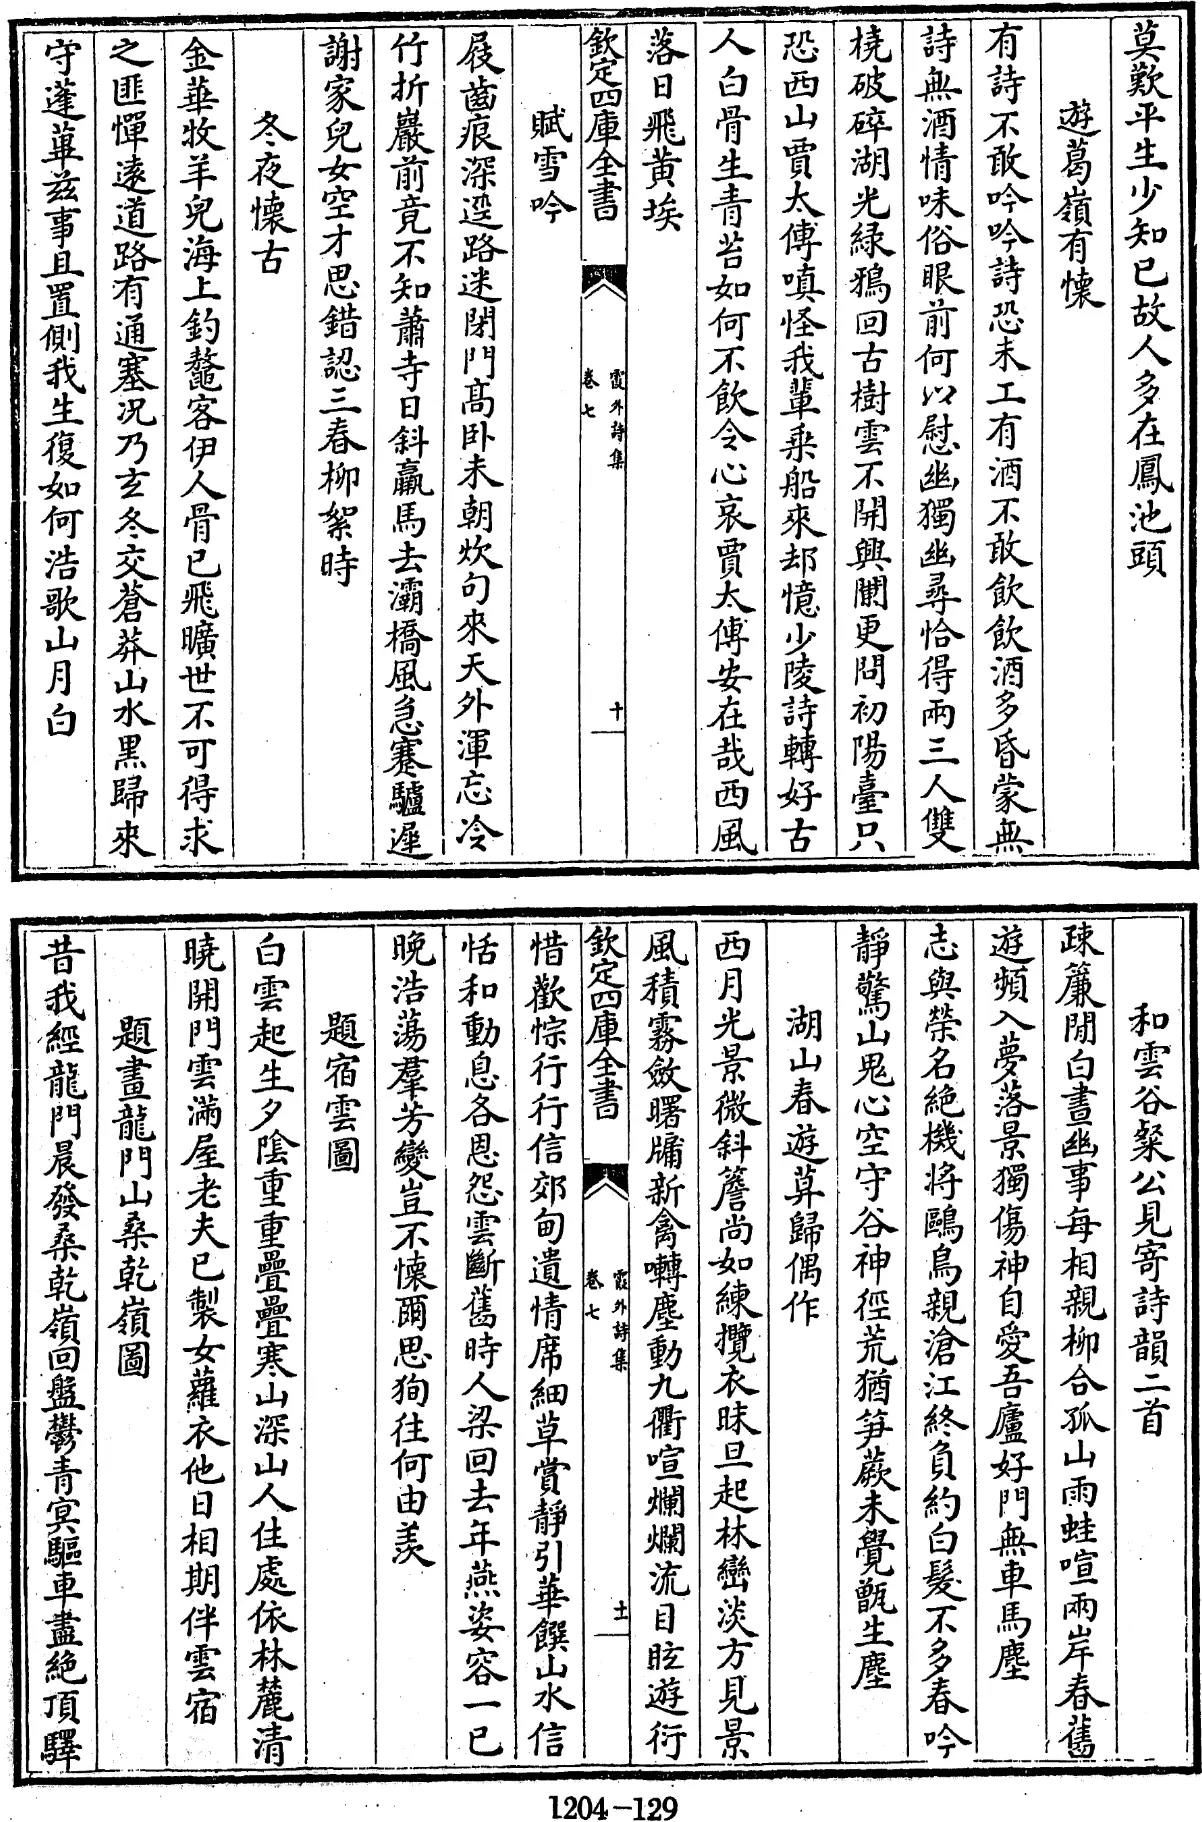 莫歎平生少知已故人多在鳳池頭
遊葛嶺有懷
有詩不敢吟吟詩恐未工有酒不敢飲飲酒多昏蒙無
詩無酒情味俗眼前何以慰幽獨幽尋恰得兩三人雙
橈破碎湖光緑鴉回古樹雲不開興闌更問初陽臺只
恐西山賈太傅嗔怪我輩乗船來却憶少陵詩轉好古
人白骨生青苔如何不飲令心哀賈太傅安在哉西風
落日飛黄埃
欽定四庫全書
霞外詩集
卷七
十
賦雪吟
屐齒痕深逕路迷閉門髙卧未朝炊句來天外渾忘冷
竹折巖前竟不知蕭寺日斜羸馬去灞橋風急蹇驢遲
謝家兒女空才思錯認三春柳絮時
冬夜懷古
金華牧羊兒海上釣鼇客伊人骨已飛曠世不可得求
之匪憚遠道路有通塞况乃玄冬交蒼莽山水黒歸來
守蓬蓽兹事且置側我生復如何浩歌山月白
和雲谷粲公見寄詩韻二首
疎簾閒白晝幽事每相親柳合孤山雨蛙喧兩岸春舊
遊頻入夢落景獨傷神自愛吾廬好門無車馬塵
志與榮名絶機將鷗鳥親滄江終負約白髮不多春吟
靜驚山鬼心空守谷神徑荒猶笋蕨未覺甑生塵
湖山春遊莫歸偶作
西月光景微斜簷尚如練攬衣昧旦起林巒淡方見景
風積霧斂曙牖新禽囀塵動九衢喧爛爛流目眩遊衍
惜歡悰行行信郊甸遺情席細草賞靜引華饌山水信
恬和動息各恩怨雲斷舊時人梁回去年燕姿容一已
晚浩蕩羣芳變豈不懷爾思狥往何由羡
欽定四庫全書
霞外詩集
卷七
十一
題宿雲圖
白雲起生夕陰重重疊疊寒山深山人住處依林麓清
曉開門雲滿屋老夫已製女蘿衣他日相期伴雲宿
題畫龍門山桑乾嶺圖
昔我經龍門晨發桑乾嶺回盤鬱青冥驅車盡絶頂驛
1204-129